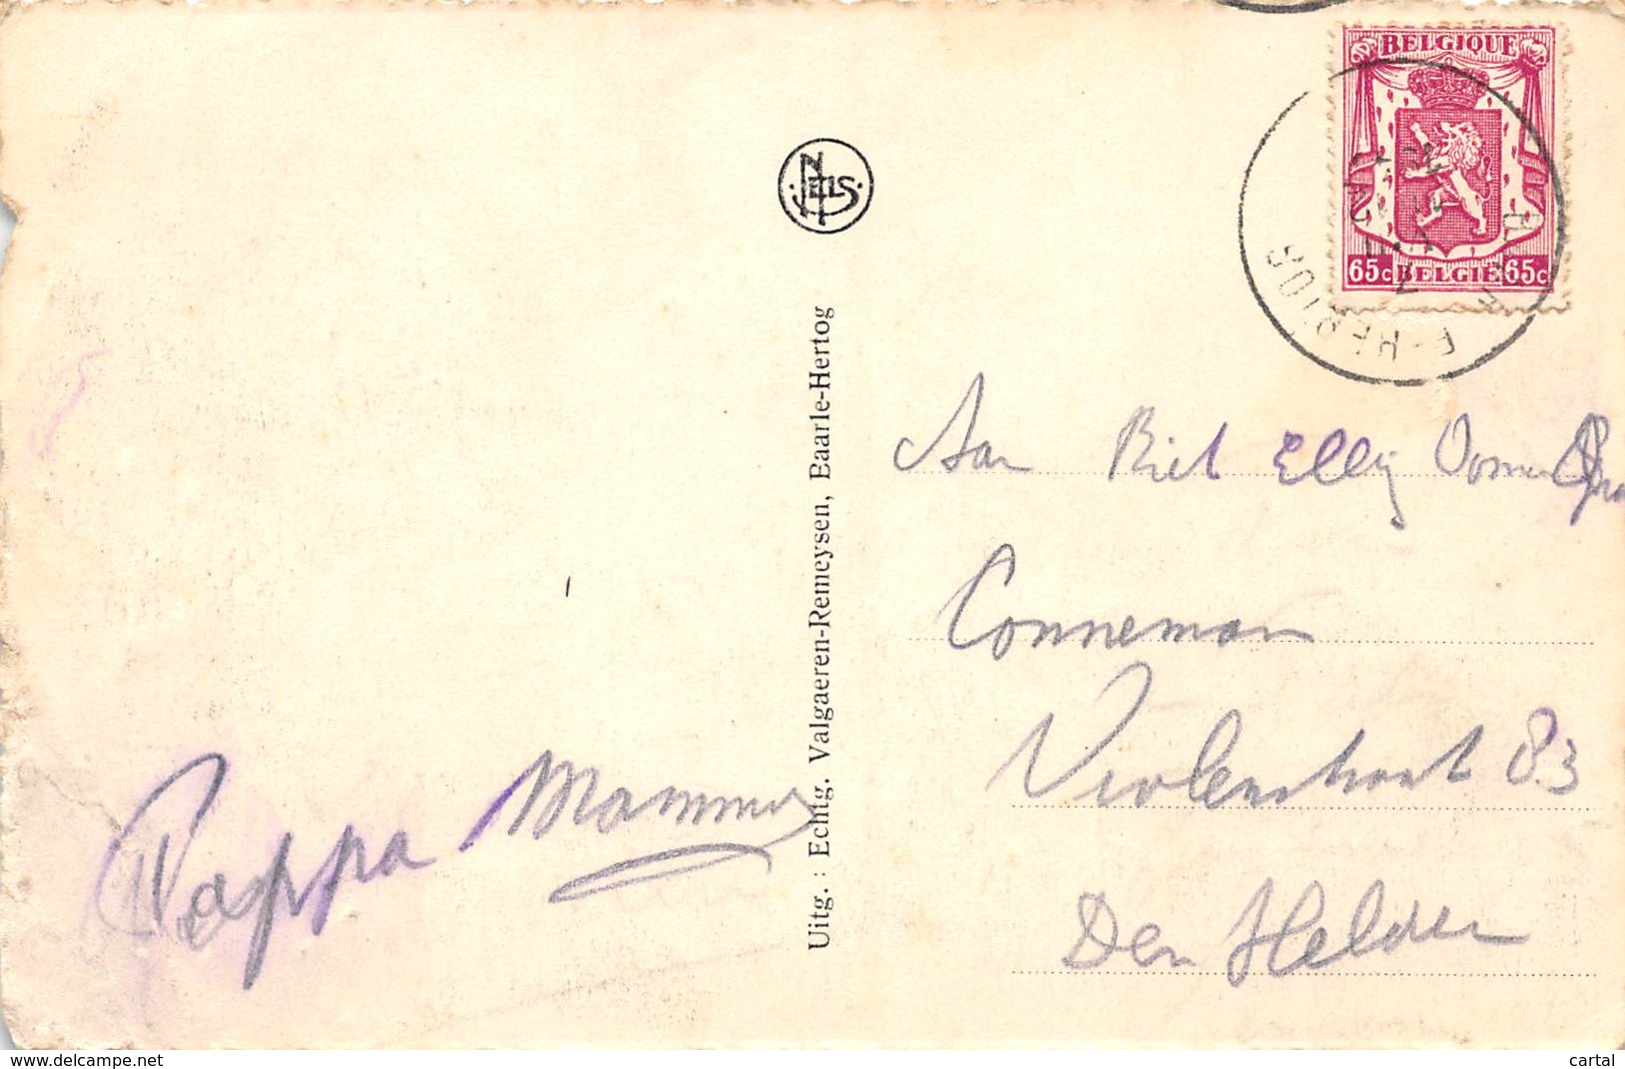 BELGIQUE
65c BELGIË 65c
NELS
Uitg. : Echtg. Valgaeren-Remeysen, Baarle-Hertog
Aan Riet Elly Oom
Conneman
Violenstraat 83
Den Helder
Pappa Mamma
www.delcampe.net
cartal